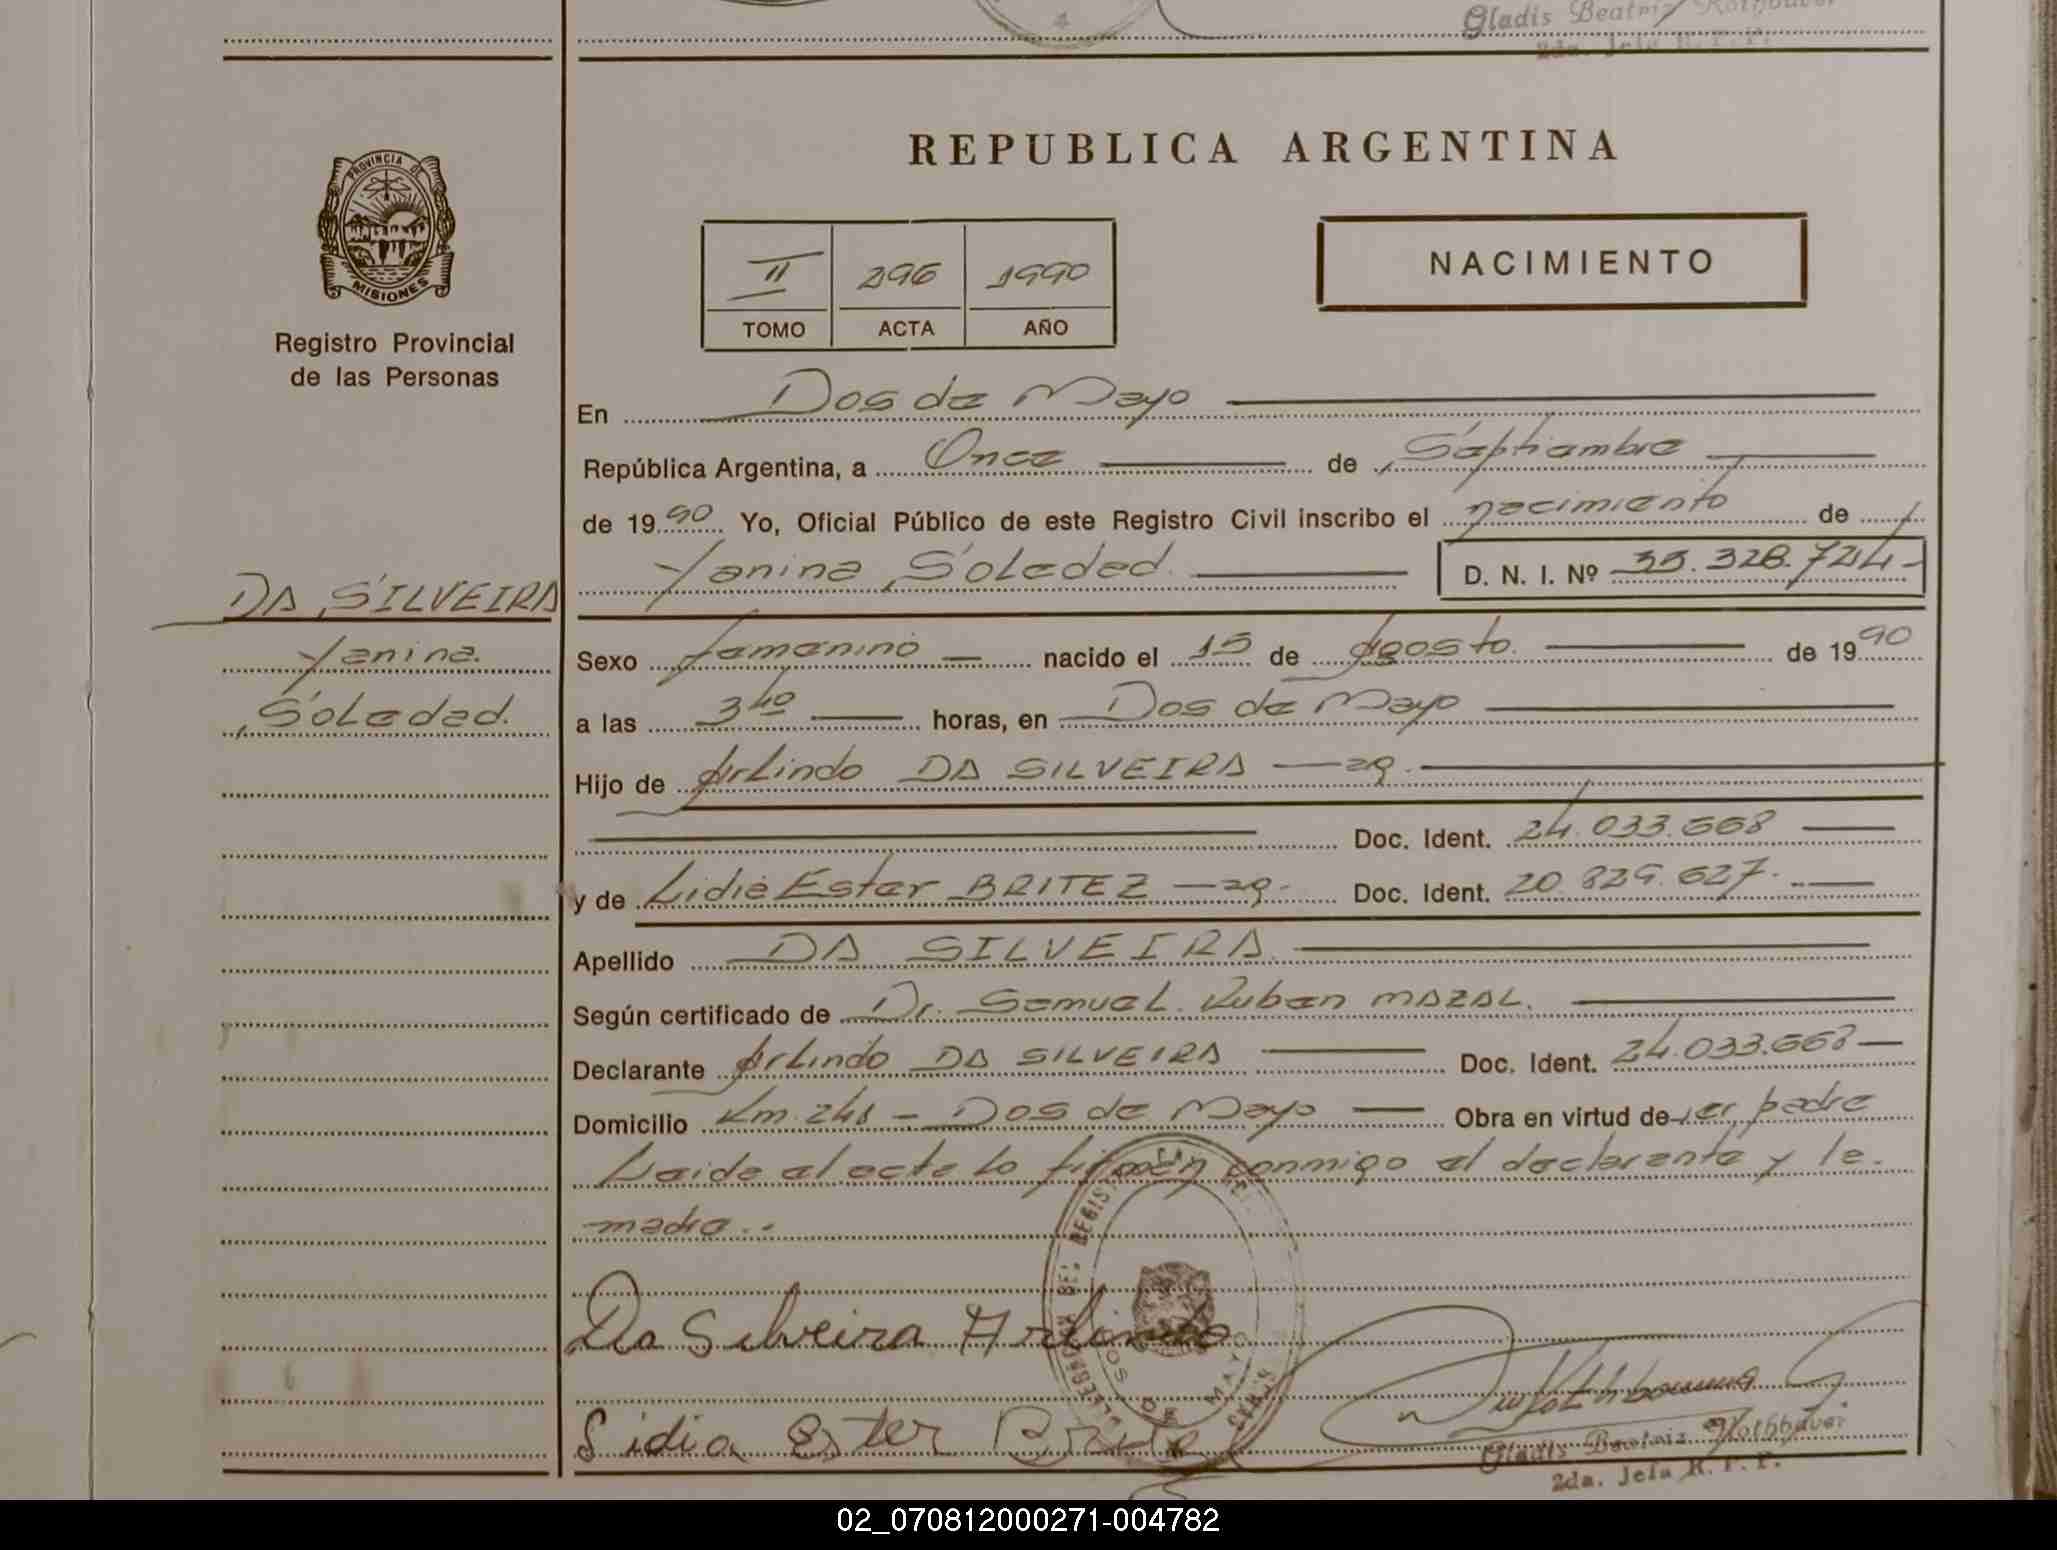 Gladis Beatriz Rothbauer
2da. Jefa R. P. P.
REPUBLICA ARGENTINA
PROVINCIA DE
MISIONES
Registro Provincial
de las Personas
II 296 1990
TOMO ACTA AÑO
NACIMIENTO
En Dos de Mayo
República Argentina, a Once de Septiembre
de 1990 Yo, Oficial Público de este Registro Civil inscribo el nacimiento de
Yanina Soledad. D. N. I. Nº 35.328.724-
DA SILVEIRA
Yanina
Soledad.
Sexo femenino nacido el 15 de Agosto. de 1990
a las 3 40 horas, en Dos de Mayo
Hijo de Arlindo DA SILVEIRA - ag.
Doc. Ident. 24.033.668
y de Lidia Ester BRITEZ - ag. Doc. Ident. 20.829.627.
Apellido DA SILVEIRA
Según certificado de Dr. Samuel Ruben MAZAL.
Declarante Arlindo DA SILVEIRA Doc. Ident. 24.033.668
Domicilio Km. 248 - Dos de Mayo Obra en virtud de ser padre
Leida el acta lo firman conmigo el declarante y la
madre..
Da Silveira Arlindo
Lidia Ester Britez
Gladis Beatriz Rothbauer
2da. Jefa R. P. P.
02_070812000271-004782